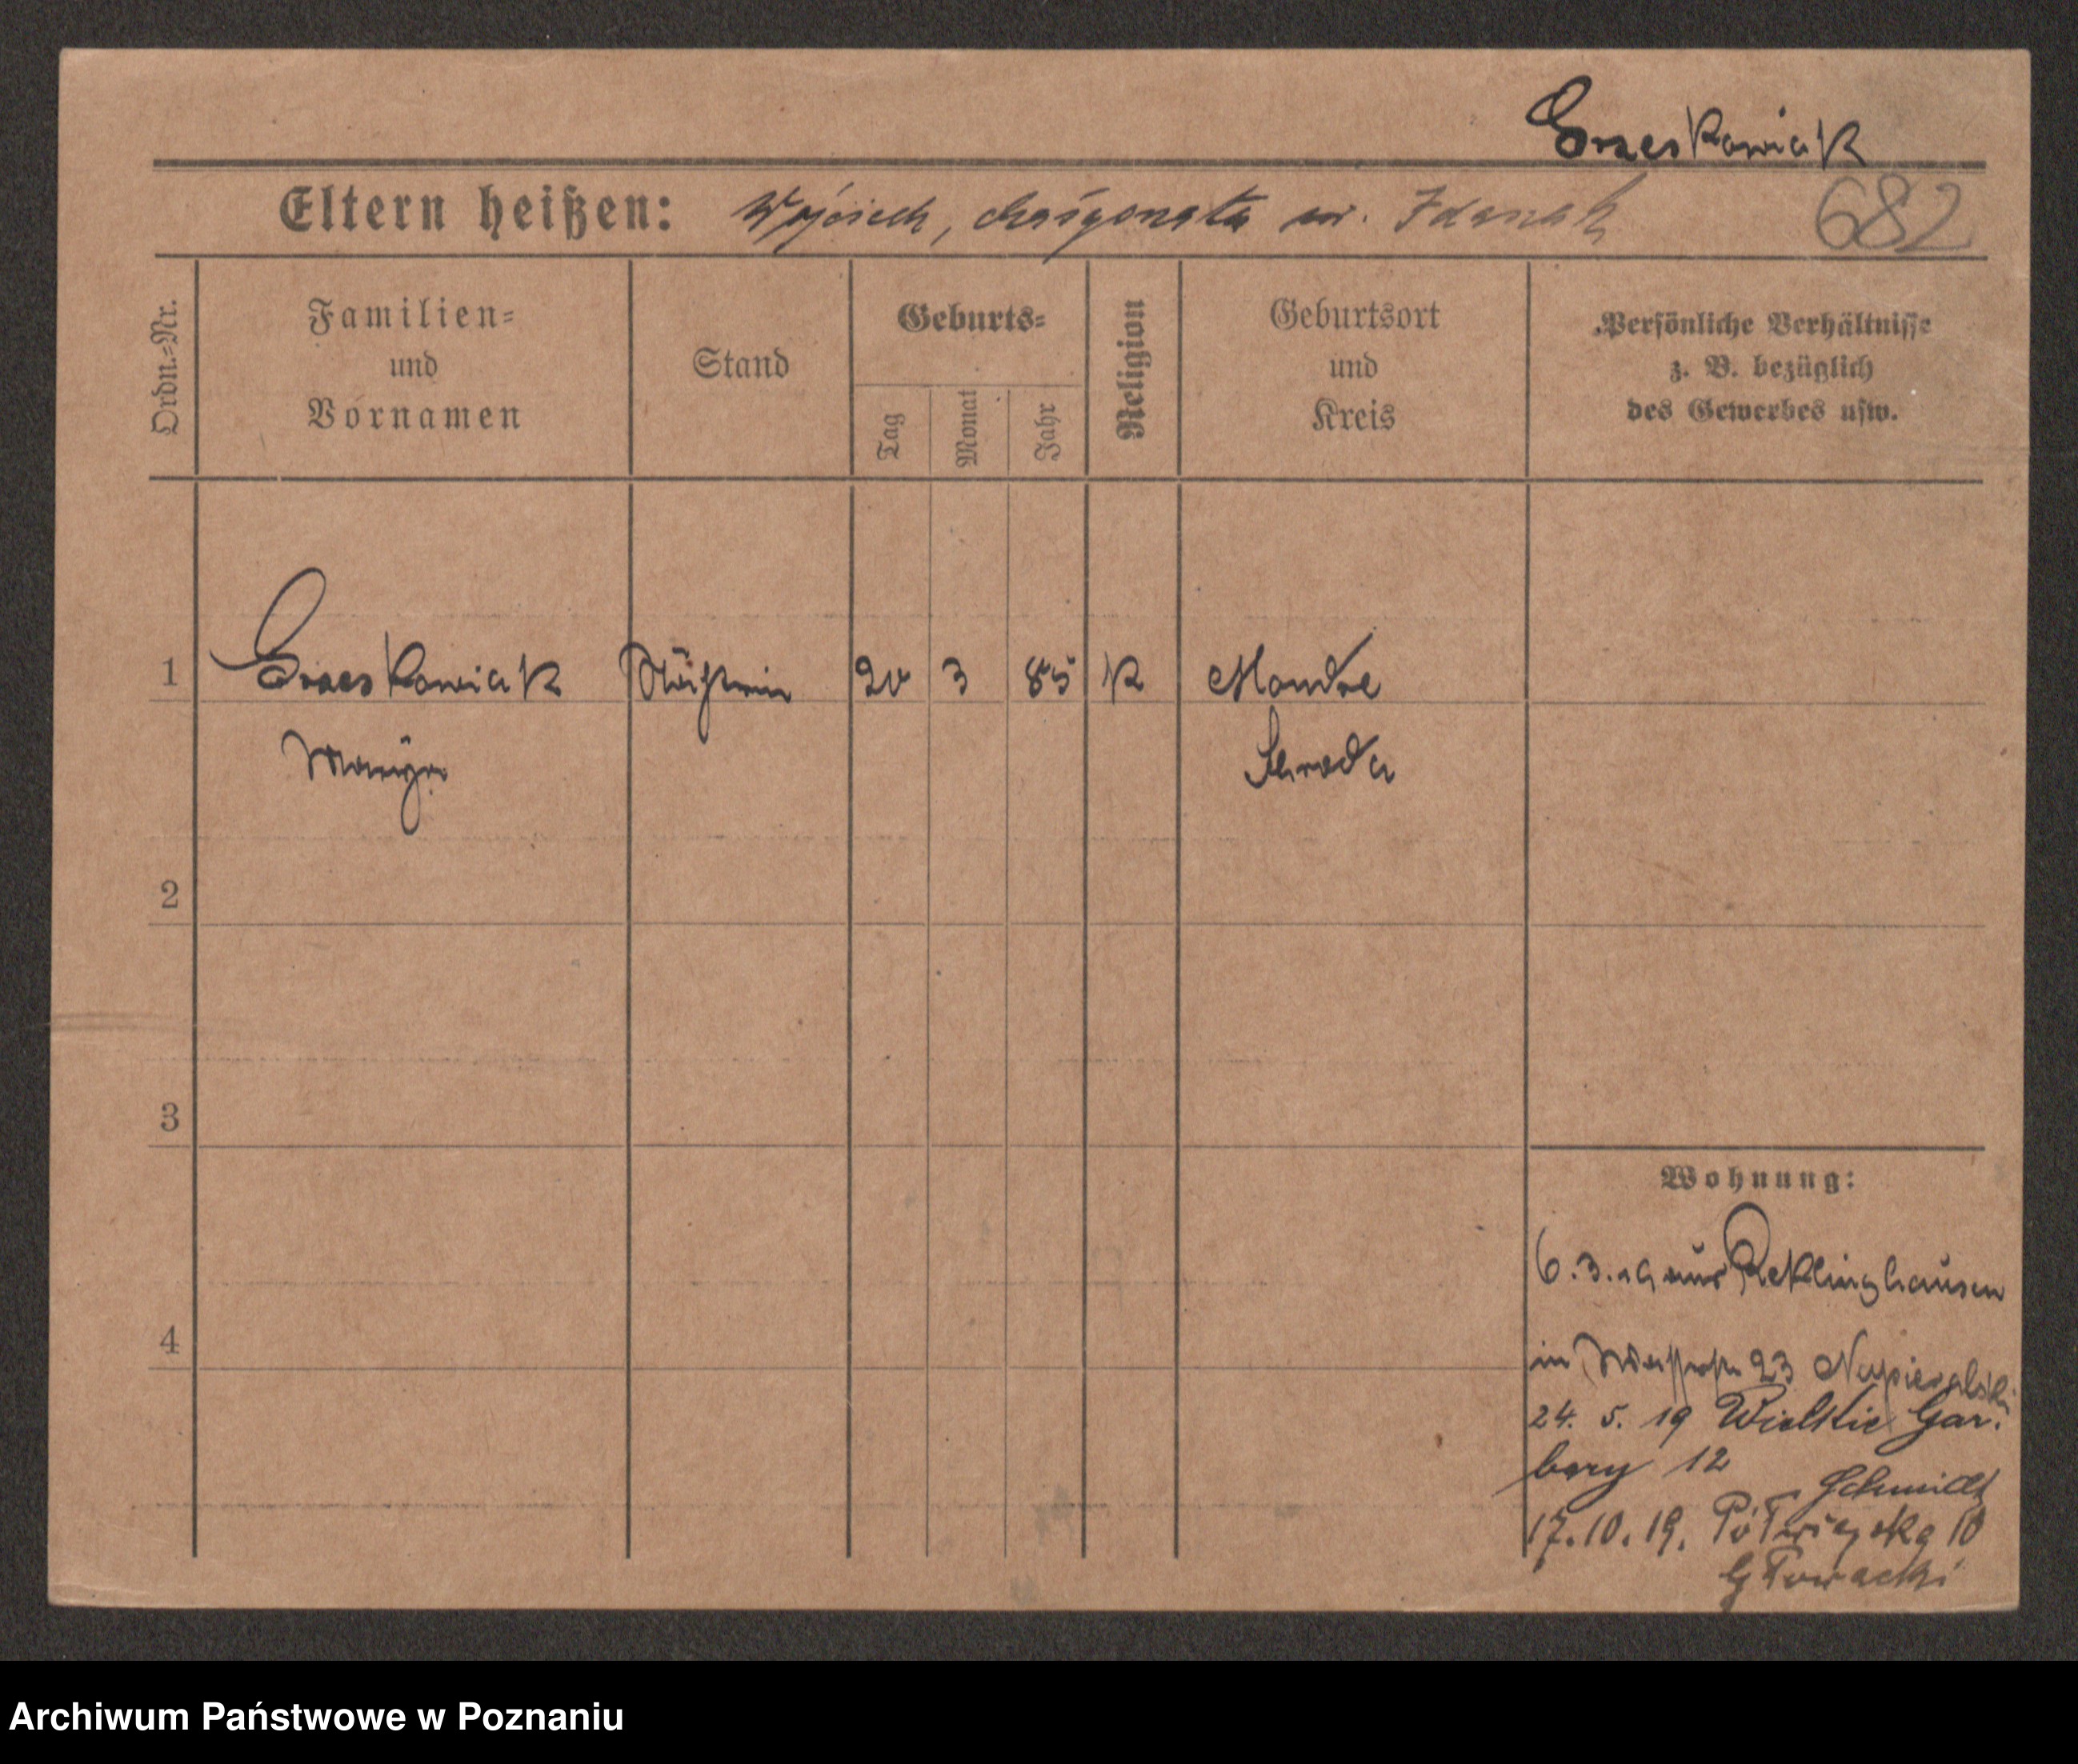 Graeskowiak
Eltern heißen: Wojciech, Małgorzata ur. Zdanak
682
Ordn.=Nr.
Familien=
und
Vornamen
Stand
Geburts=
Tag
Monat
Jahr
Religion
Geburtsort
und
Kreis
Persönliche Verhältnisse
z. B. bezüglich
des Gewerbes usw.
1 Graeskowiak 20 3 85 K Mondre
Marya Schroda
2
3
4
Wohnung:
6.3.19 aus Reklinghausen
in 23 Napieralski
24. 5. 19 Wielkie Gar.
bary 12
Schmidt
17.10.19. Półwiejska 10
Głowacki
Archiwum Państwowe w Poznaniu